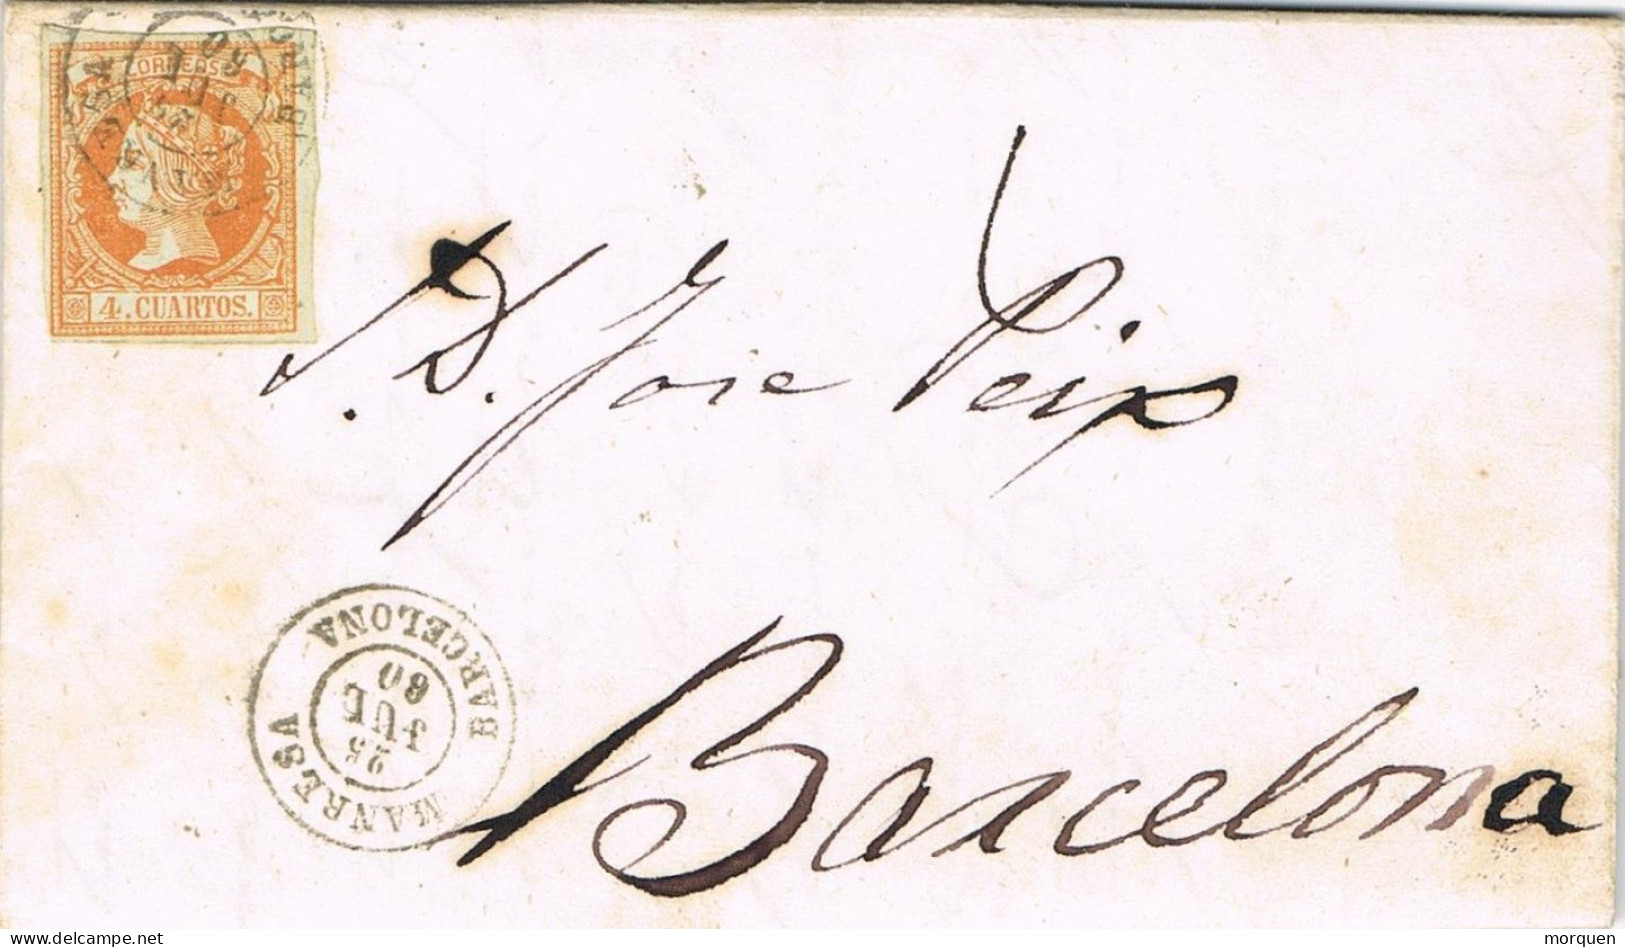 CORREOS
4. CUARTOS.
S. D. Jose Peix
BARCELONA
MANRESA
25
JUL
60
Barcelona
delcampe.net
morquen